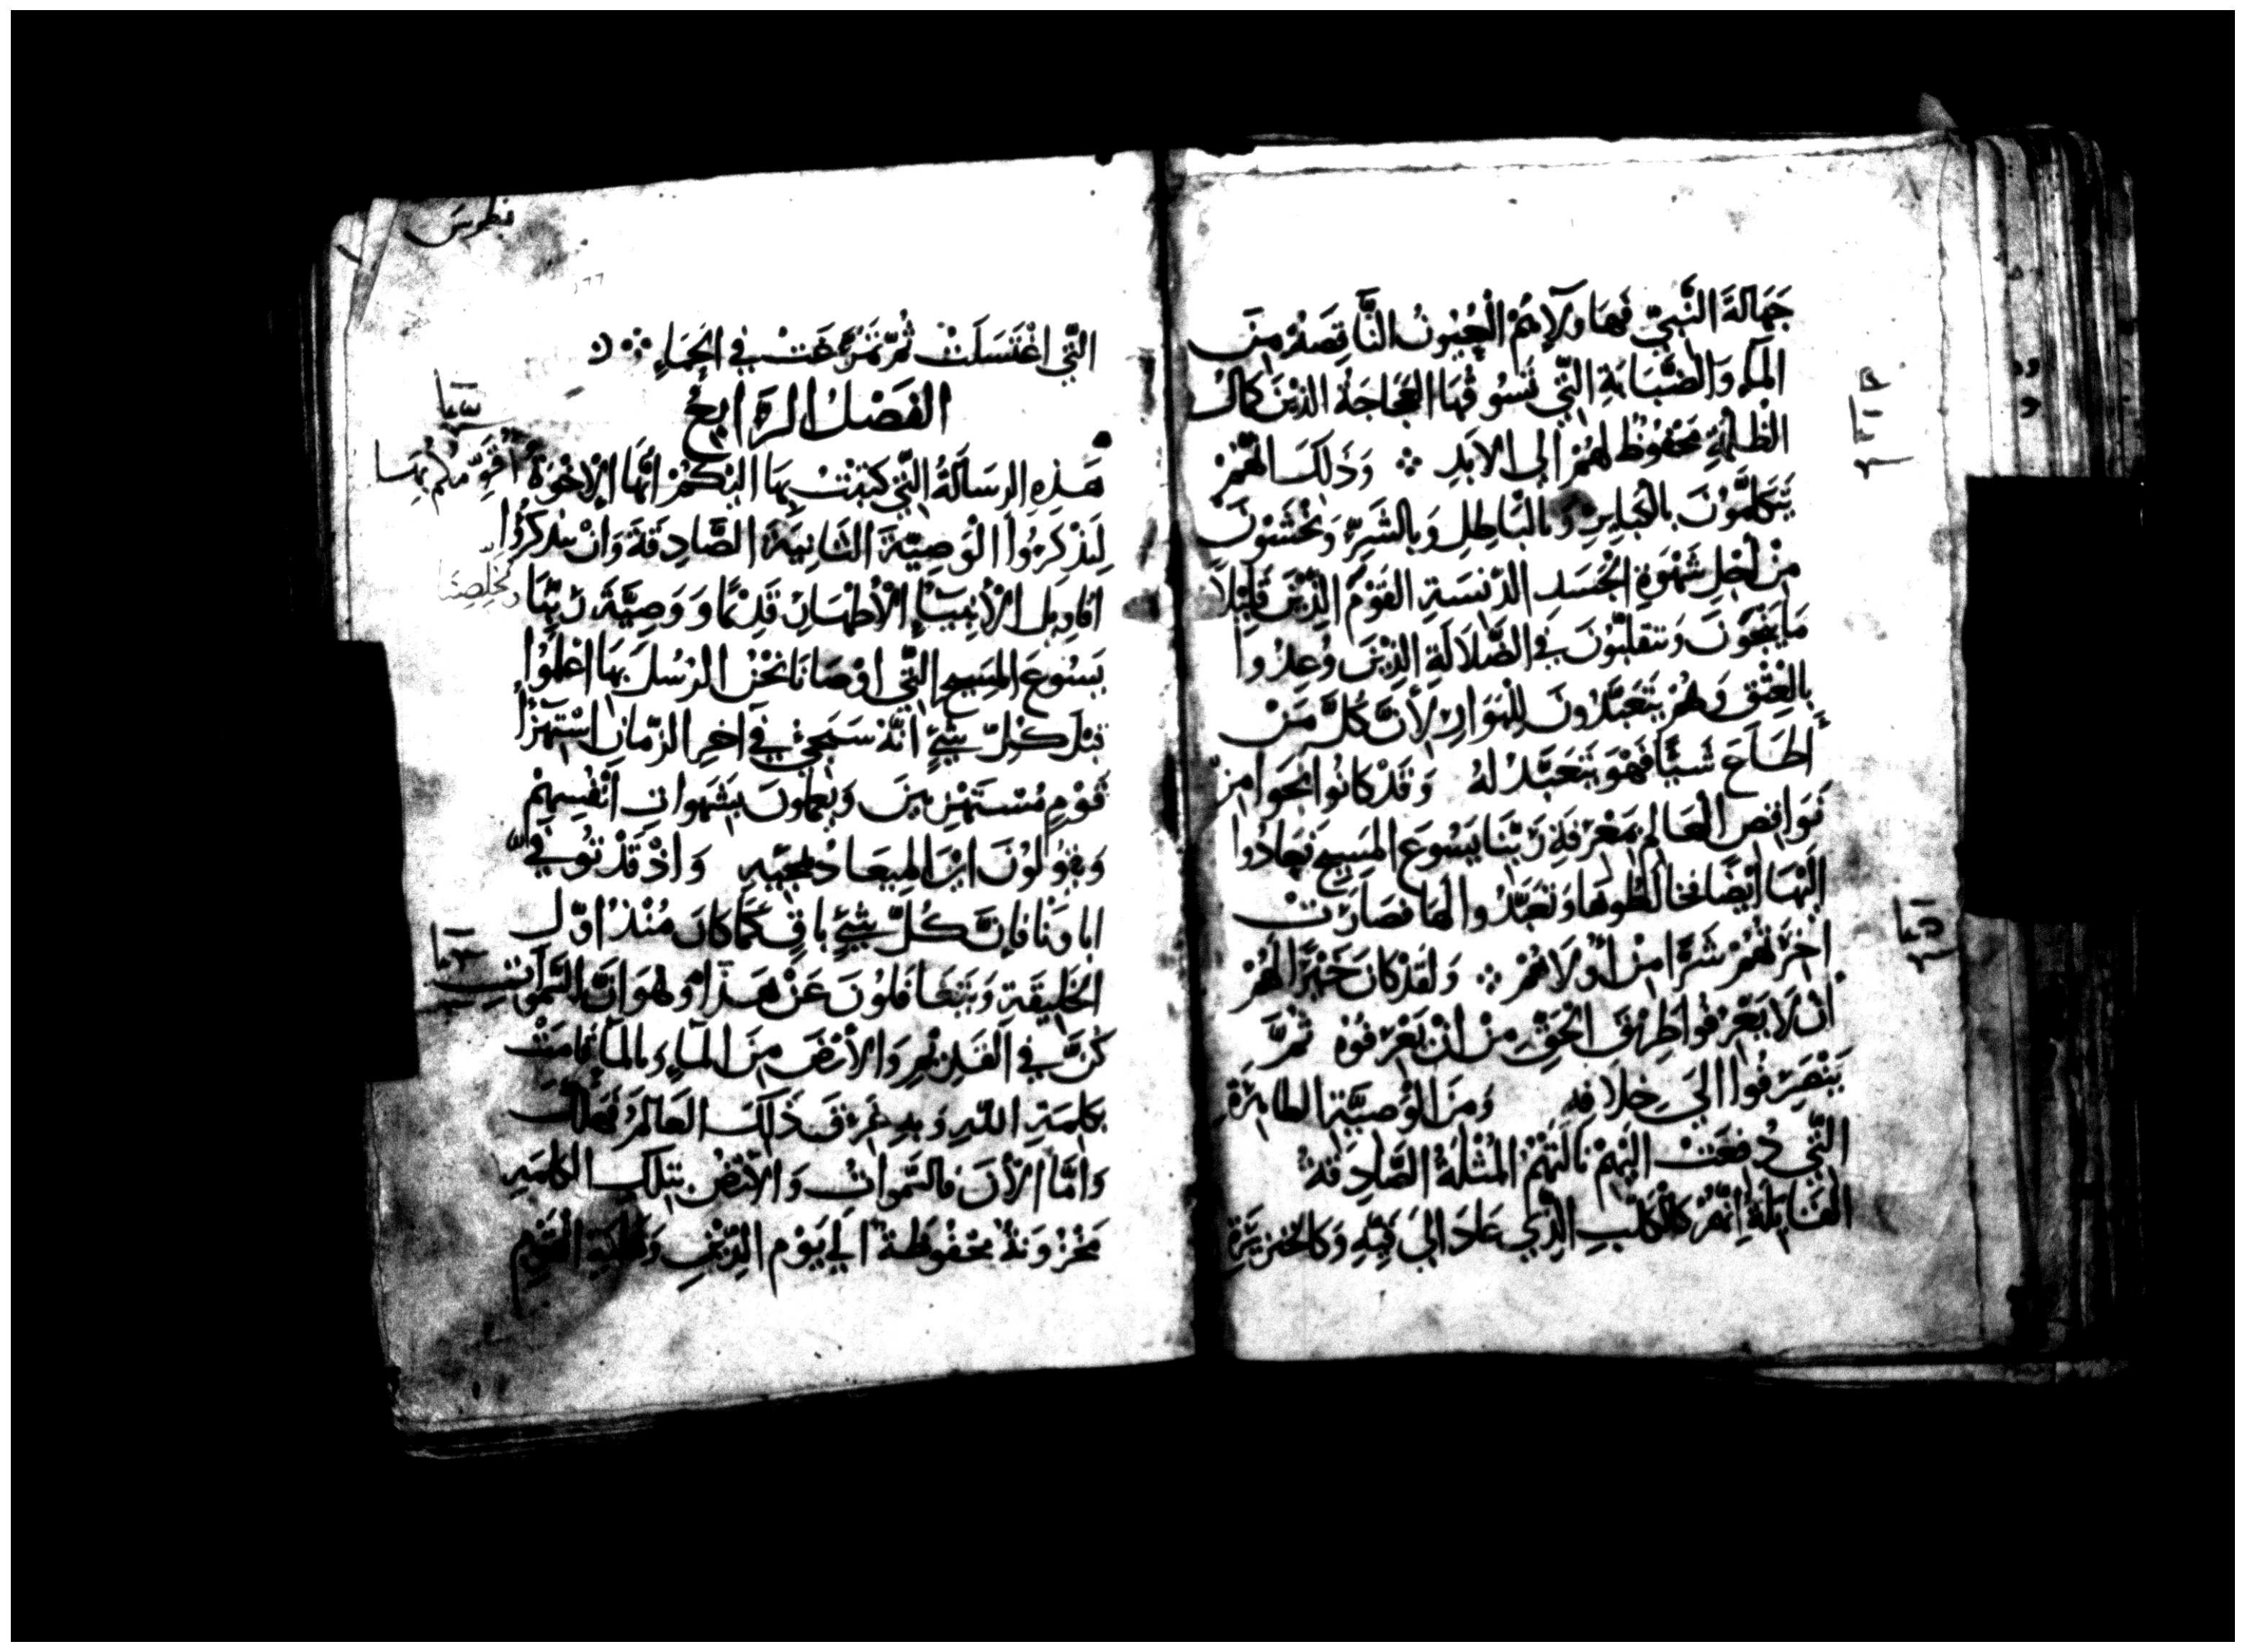 جَهَالَةَ النَّبِيّ فَهَاوُلَآءِ هُمُ الْعُيُونُ النَّاقِصَةُ مِنَ
المآءِ وَالضَّبَابَةِ الَّتِي تَسُوقُهَا العَجَاجَةُ الذِينَ كَانَتْ
الظُلْمَةِ مَحْفُوظ لَهُمْ إلى الابَدِ ※ وَذَلِكَ انَّهُمْ
يَتَكَلَّمُونَ بالكَبَايِرِ وَبالْبَاطِلِ وَبالشَرِّ وَتَخْشَوْنَ
مِنْ أَجْلِ شَهْوَةِ الجَسَدِ الدَّنِسَةِ القَوْمَ الَّذِينَ قَلِيْلاً
مَا يَنْجَوْنَ وَتَتَقَلَّبُونَ فِي الضَّلَالَةِ الَّذِينَ وُعِدُوا
بِالْعِتْقِ وَهُمْ يَتَعَبَّدُونَ لِلْبَوَارِ لِأَنَّ كُلَّ مَنْ
أَطَاعَ شَيًّا فَهْوَ يَتَعَبَّدُ لهُ وَقَدْ كَانُوا نَجَوا مِنْ
نَوَاقِصِ الْعَالَمِ بمَعْرِفَةِ رَبِّنَا يَسُوعَ المَسِيحِ فَعَادُوا
الَيْهَا أَيْضًا فَخَالَطُوهَا وَتَعَبَّدُوا لَهَا فَصَارَتْ
اخِرَتُهُمْ شَرًّا مِنْ أُوْلَاهُمْ ※ وَلَقَدْ كَانَ خَيْرًا لَهُمْ
أن لَا يَعْرِفُوا طَرِيْقَ الْحَقِّ مِنْ انْ يَعْرِفُوهُ ثُمَّ
يَنْصَرِفُوا الَي خِلَافِهِ وَمِنَ الْوَصِيَّةِ الطاهِرَةِ
الَّتِي دُفِعَتْ الَيْهِمْ نَالَتْهُمُ المُثْلَةُ الصَّادِقَةُ
القَايِلَةُ إنَّهُمْ كَالْكَلْبِ الَّذِي عَادَ الَي قَيْئِهِ وَكَالخِنْزِيْرَةِ
بطرس
١٦٦
الَّتِي اغْتَسَلَتْ ثُمَّ تَمَرَّغَتْ فِي الحَمَاءِ ※
الفَصْلُ الرَّابِعُ
هَذِهِ الرِسَالَةُ الَّتِي كَتَبْتُ بِهَا الَيْكُمْ أَيُّهَا الْإِخْوَةُ أُقَوِّمُكُم بها
لِتَذْكِرُوا الْوَصِيَّةَ الثَانِيَةَ الصَّادِقَةَ وَانْ تَذْكِرُوا
اقَاوِيل الْأَنْبِيَآءِ الْأَطْهَارِ قَدِيْمًا وَوَصِيَّةَ رَبِّنَا وَمُخَلِّصِنَا
يَسُوعَ المَسِيحِ الَّتِي اوْصَانَا نَحْنُ الرُسُلَ بِهَا اعْلَمُوا
قَبْلَ كُلِّ شَيْءٍ انَّهُ سَيَجِيءُ فِي آخِرِ الزَّمَانِ اسْتِهْزَأُ
قَوْمٍ مُسْتَهْزِيِينَ وَيَعْمَلونَ بِشَهَواتِ انْفُسِهِمْ
وَيَقُولُونَ ايْنَ المِيعَادُ لمجِيَّهِ وَاذْ قَدْ تُوُفِّيَ
ابَاوُنَا فَإِنَّ كُلَّ شَيْءٍ بَاقٍ كَمَا كَانَ مُنْذُ اوَّلِ
الخَلِيقَةِ وَيَتَغَافَلُونَ عَنْ هَذَا وَهُوَ انَّ السَّمَوَاتِ
كُنَّ فِي القَدِيْمِ وَالْأَرْضَ مِنَ المَآءِ وَبِالمَآءِ قَامَتْ
بكَلِمَةِ اللهِ وَبهِ غَرِقَ ذَلِكَ العَالَمُ فَهَلَكَ
وَامَّا الْأَنَ فَالسَّمَواتُ وَالْأَرْضُ بِتِلْكَ الكَلِمَةِ
مَخْزُونَةٌ مَحْفُوظَةٌ الَى يَوْمِ الدِّيْنِ وَهَلَكَةِ القَوْمِ